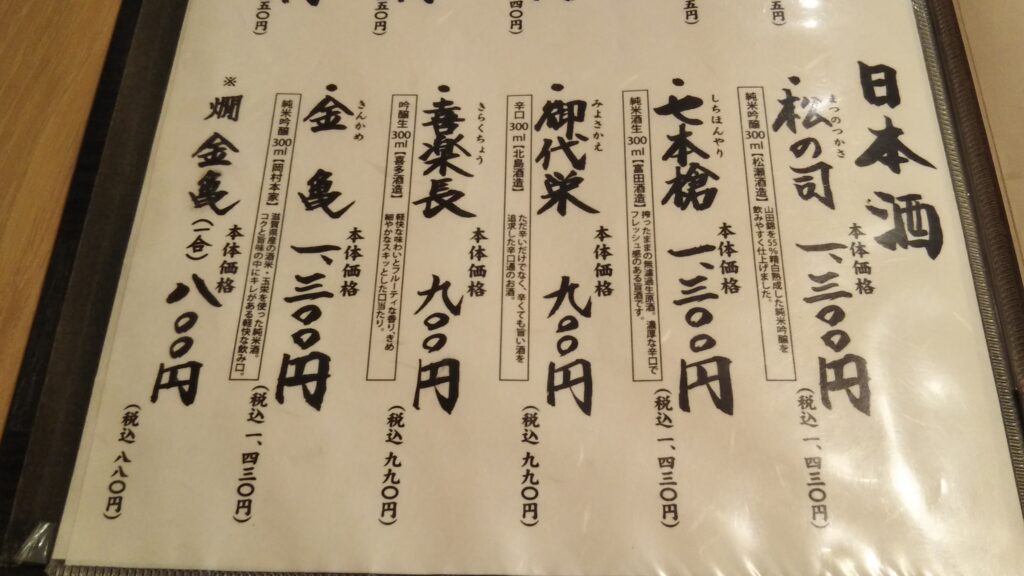 日本酒
まつのつかさ
・松の司
本体価格
一、三〇〇円
(税込 一、四三〇円)
純米吟醸 300ml【松瀬酒造】
山田錦を55%精白熟成した純米吟醸を
飲みやすく仕上げました。
しちほんやり
・七本槍
本体価格
一、三〇〇円
(税込 一、四三〇円)
純米酒生 300ml【富田酒造】
搾ったままの無濾過生原酒。濃厚な辛口で
フレッシュ感のある旨酒です。
みよさかえ
・御代栄
本体価格
九〇〇円
(税込 九九〇円)
辛口 300ml【北島酒造】
ただ辛いだけでなく、辛くても旨い酒を
追求した辛口通のお酒。
きらくちょう
・喜楽長
本体価格
九〇〇円
(税込 九九〇円)
吟醸生 300ml【喜多酒造】
軽快な味わいとフルーティな香り、きめ
細やかなスキッとした口当たり。
きんかめ
・金亀
本体価格
一、三〇〇円
(税込 一、四三〇円)
純米吟醸 300ml【岡村本家】
滋賀県産の酒米・玉栄を使った純米酒。
コクと旨味の中にキレがある軽快な飲み口。
※燗 金亀(一合)
本体価格
八〇〇円
(税込 八八〇円)
五円)
五円)
四〇円)
五〇円)
五〇円)
円
円